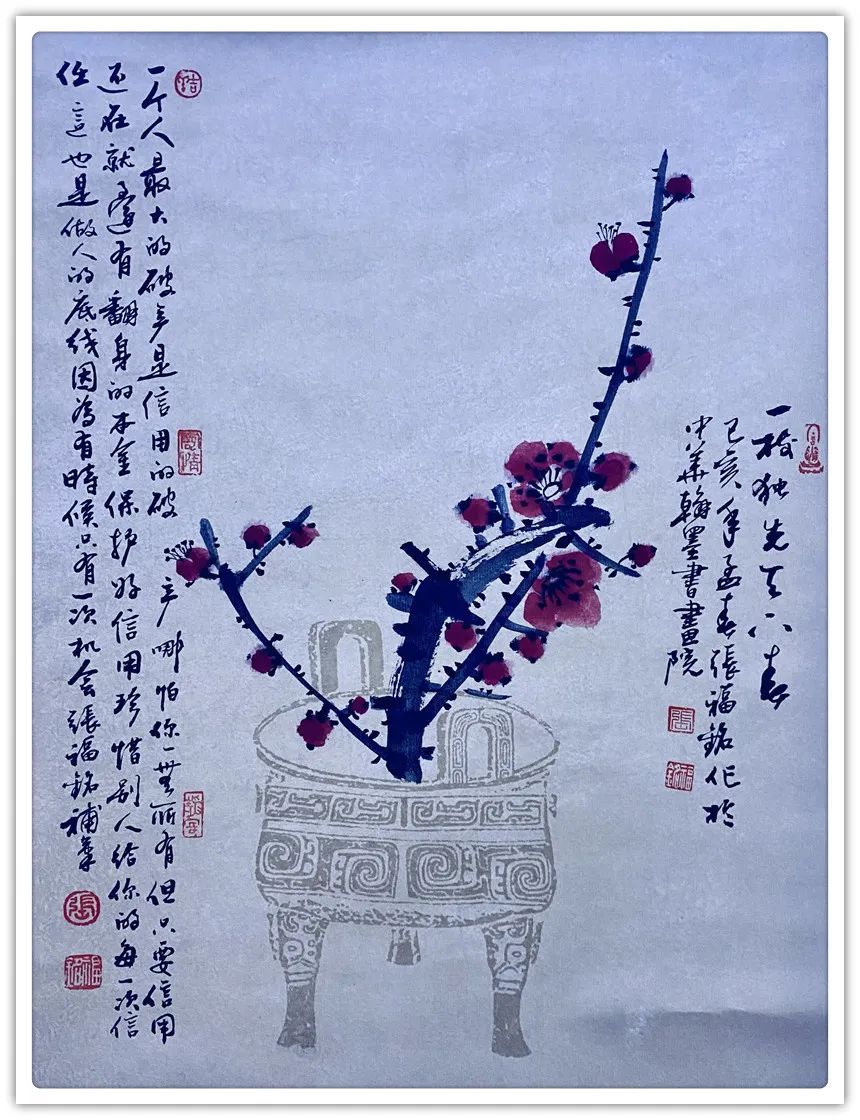 一枝独先天下春
己亥年孟春張福銘作於
中華翰墨書畫院
張
福銘
一个人最大的破产是信用的破产哪怕你一無所有但只要信用
还在就還有翻身的本金保护好信用珍惜别人给你的每一次信
任這也是做人的底线因為有時候只有一次机会張福銘補筆
張
福銘